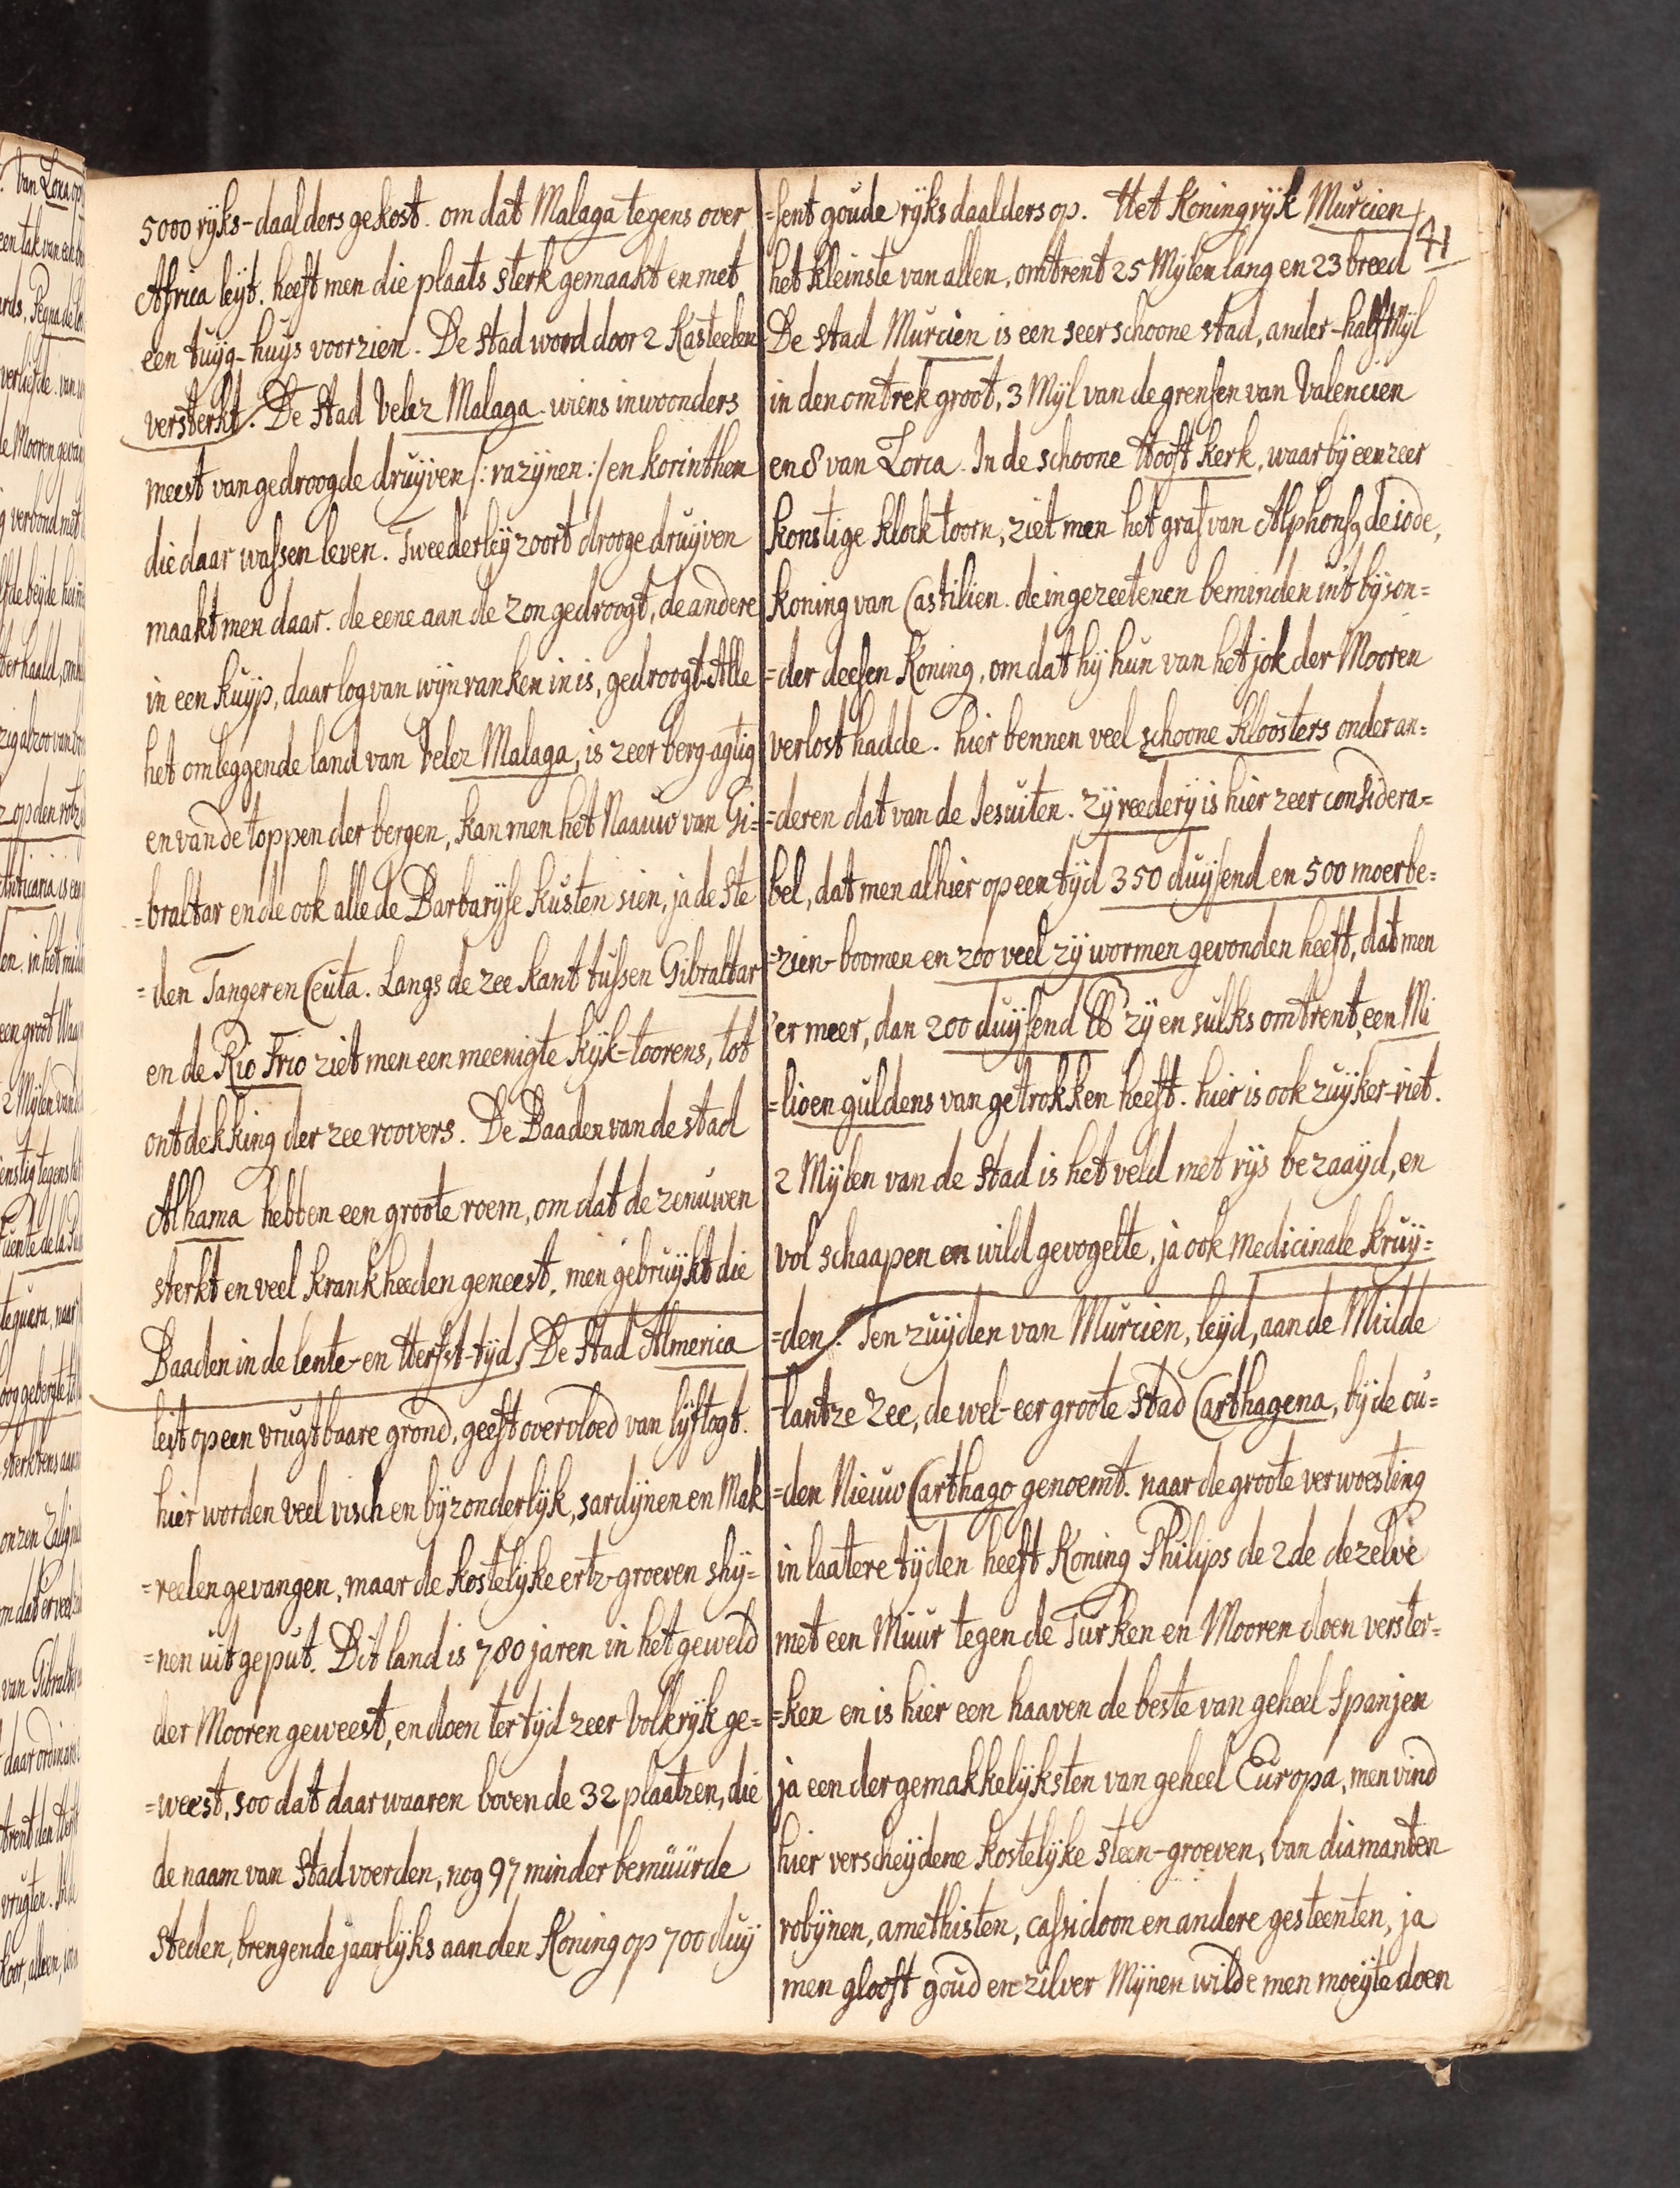 5000 ryks-daalders gekost. om dat Malaga tegens over
Africa leyt. heeft men die plaats sterk gemaakt en met
een tuyg-huys voorzien. De stad word door 2 Kasteelen
versterkt. De Stad Velez Malaga. wiens inwoonders
meest van gedroogde druyven /: razynen :/ en korinthen
die daar wassen leven. Tweederley zoort drooge druyven
maakt men daar. de eene aan de zon gedroogt, de andere
in een kuyp, daar log van wynranken in is, gedroogt. Alle
het omleggende land van Velez Malaga, is zeer berg-agtig
en van de toppen der bergen, kan men het Naauw van Gi=
=braltar ende ook alle de Barbaryse kusten sien, ja de Ste
=den Tanger en Ceuta. Langs de zee kant tussen Gibraltar
en de Rio Frio ziet men een meenigte kyk-toorens, tot
ontdekking der zee roovers. De Baaden van de stad
Alhama hebben een groote roem, om dat de zenuwen
sterkt en veel krankheeden geneest. men gebruykt die
Baaden in de lente- en Herfst-tyd. De Stad Almerica
leit op een vrugtbaare grond, geeft overvloed van lyftogt.
hier worden veel visch en byzonderlyk, sardynen en Mak
=reelen gevangen, maar de kostelyke ertz-groeven shy=
=nen uitgeput. Dit land is 780 jaren in het geweld
der Mooren geweest, en doen ter tyd zeer Volkryk ge=
=weest, soo dat daar waaren boven de 32 plaatzen, die
de naam van Stad voerden, nog 97 minder bemuurde
Steden, brengende jaarlyks aan den Koning op 700 duy
=sent goude ryksdaalders op. Het Koningryk Murcien
41
het kleinste van allen, omtrent 25 Mylen lang en 23 breed
De stad Murcien is een seer schoone stad, ander-half Myl
in den omtrek groot, 3 Myl van de grensen van Valencien
en 8 van Lorca. In de schoone Hooft kerk, waar by een zeer
konstige klock toorn, ziet men het graf van Alphons de 10de,
koning van Castilien. de ingezeetenen beminden in't byson=
=der deesen Koning, om dat hy hun van het jok der Mooren
verlost hadde. hier bennen veel schoone kloosters onder an=
=deren dat van de Jesuiten. Zyreedery is hier zeer considera=
bel, dat men alhier op een tyd 350 duysend en 500 moerbe=
=zien-boomen en zoo veel zy wormen gevonden heeft, dat men
'er meer, dan 200 duysend lb zy en sulks omtrent, een Mi
=lioen guldens van getrokken heeft. hier is ook zuyker-riet.
2 Mylen van de Stad is het veld met rys bezaayd, en
vol schaapen en wild gevogelte, ja ook medicinale kruy=
=den. Ten zuyden van Murcien, leyd, aan de Midde
lantze Zee, de wel-eer groote Stad Carthagena, by de ou=
=den Nieuw Carthago genoemt. naar de groote verwoesting
in laatere tyden heeft Koning Philips de 2de dezelve
met een Muur tegen de Turken en Mooren doen verster=
=ken en is hier een haaven de beste van geheel Spanjen
ja een der gemakkelyksten van geheel Europa, men vind
hier verscheydene kostelyke steen-groeven, van diamanten
robynen, amethisten, cassidoon en andere gesteenten, ja
men glooft goud en zilver Mynen wilde men moeyte doen